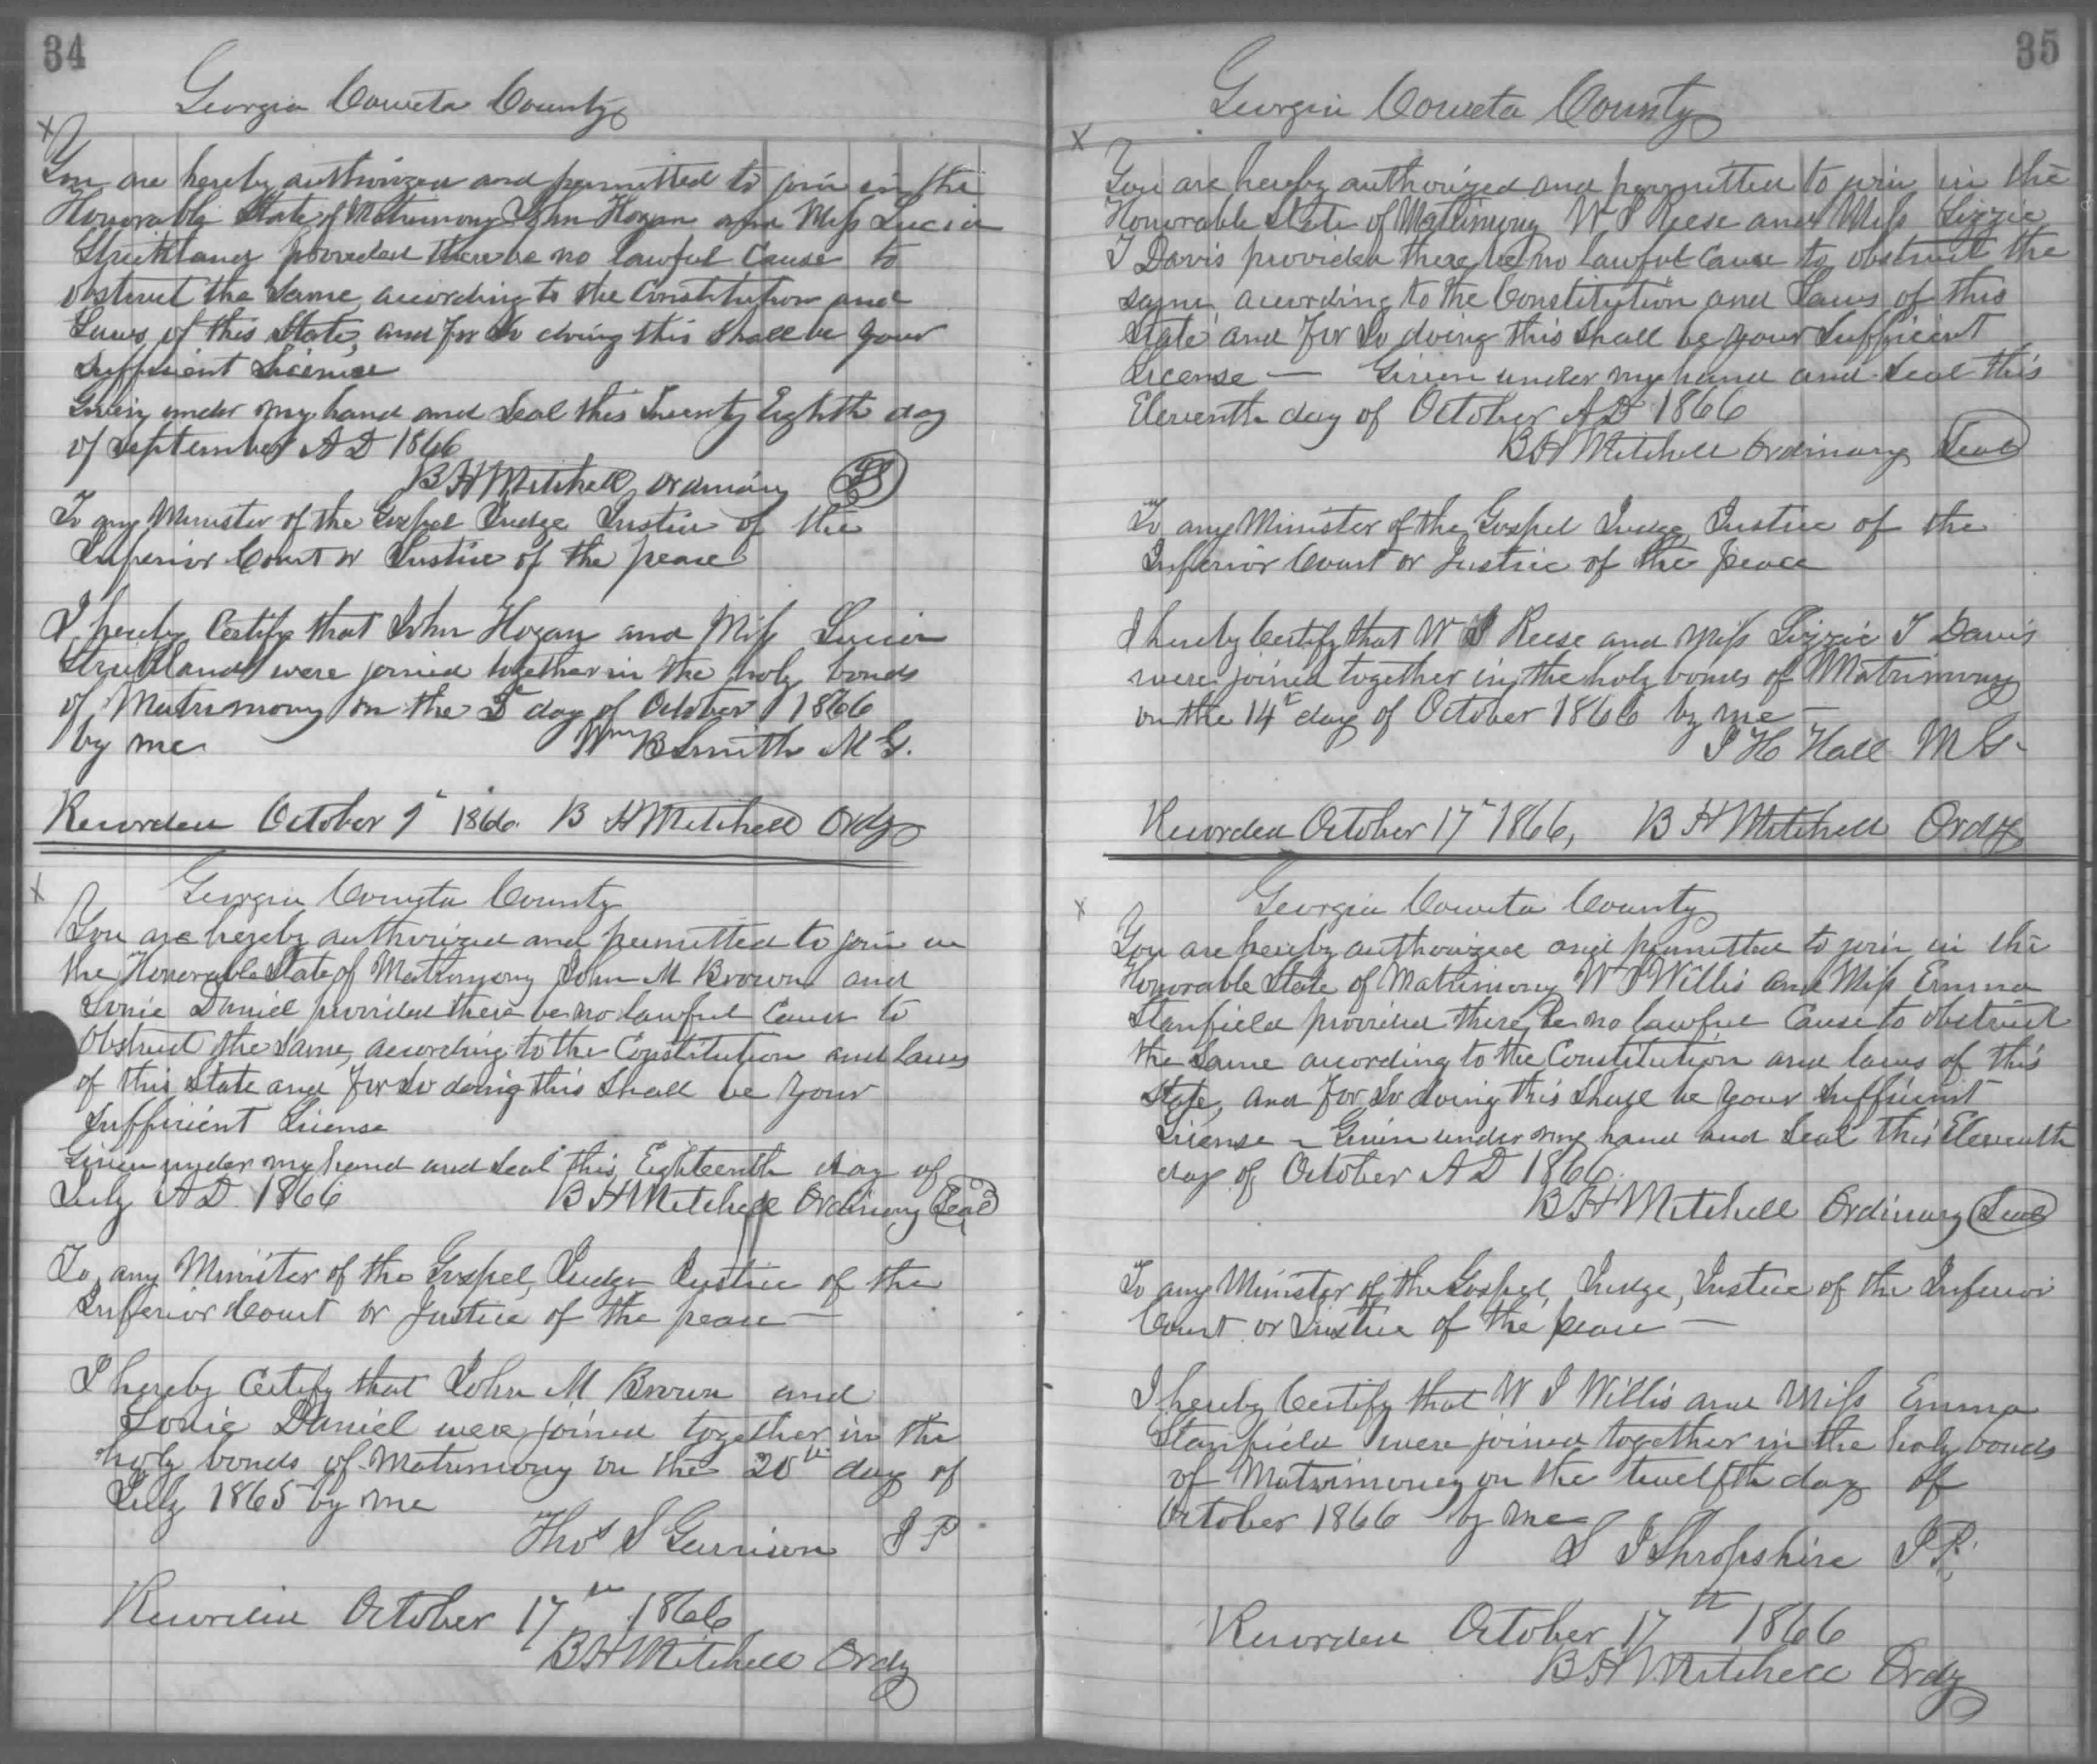 34
Georgia Coweta County
x
You are hereby authorized and permitted to join in the
Honorable State of Matrimony John Hogan and Miss Lucia
Strickland provided there be no lawful Cause to
obstruct the Same according to the Constitution and
Laws of this State, and for So doing this Shall be your
Sufficient License
Given under my hand and Seal this Twenty Eighth day
of September A D 1866
B H Mitchell ordinary LS
To any Minister of the Gospel Judge Justice of the
Inferior Court or Justice of the peace
I hereby Certify that John Hogan and Miss Lucia
Strickland were joined together in the holy bonds
of Matrimony on the 5t day of October 1866
by me Wm B Smith M G.
Recorded October 9t 1866. B H Mitchell Ordy
x
Georgia Coweta County
You are hereby authorized and permitted to join in
the Honorable State of Matrimony John M Brown and
Daniel provided there be no lawful Cause to
Obstruct the Same, according to the Constitution and laws
of this State and for So doing this Shall be your
Sufficient License
Given under my hand and Seal this Eighteenth day of
July A D. 1866 B H Mitchell Ordinary Seal
To any Minister of the Gospel, Judge Justice of the
Inferior Court or Justice of the peace —
I hereby Certify that John M Brown and
Daniel were joined together in the
holy bonds of Matrimony on the 20th day of
July 1865 by me
Thos S Garrison J P
Recorded October 17th 1866
B H Mitchell Ordy
35
Georgia Coweta County
x
You are hereby authorized and permitted to join in the
Honorable State of Matrimony W S Reese and Miss Lizzie
T Davis provided there be no lawful Cause to obstruct the
same according to the Constitution and Laws of this
State and For So doing this Shall be your Sufficient
License — Given under my hand and Seal this
Eleventh day of October A D 1866
B H Mitchell Ordinary Seal
To any Minister of the Gospel Judge Justice of the
Inferior Court or Justice of the peace
I hereby Certify that W S Reese and Miss Lizzie T Davis
were joined together in the holy bonds of Matrimony
on the 14t day of October 1866 by me —
J H Hall M G.
Recorded October 17t 1866, B H Mitchell Ordy
x
Georgia Coweta County
You are hereby authorized and permitted to join in the
Honorable State of Matrimony W J Willis and Miss Emma
Stanfield provided there be no lawful Cause to obstruct
the Same according to the Constitution and laws of this
State, and For So doing this Shall be your Sufficient
License – Given under my hand and Seal this Eleventh
day of October A D 1866.
B H Mitchell Ordinary Seal
To any Minister of the Gospel, Judge, Justice of the Inferior
Court or Justice of the peace —
I hereby Certify that W J Willis and Miss Emma
Stanfield were joined together in the holy bonds
of Matrimony on the twelfth day of
October 1866 by me
S J Shropshire J P.
Recorded October 17th 1866
B H Mitchell Ordy